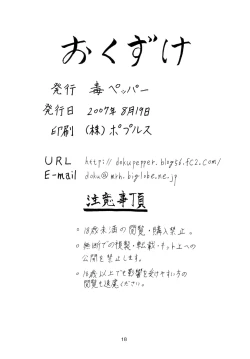 おくずけ
発行 毒ペッパー
発行日 2007年8月19日
印刷 (株)ポプルス
URL http://dokupepper.blog56.fc2.com/
E-mail doku@mrh.biglobe.ne.jp
注意事項
○18歳未満の閲覧・購入禁止。
○無断での複製・転載・ネット上への
公開を禁止します。
○18歳以上でも影響を受けやすい方の
閲覧も遠慮ください。
18